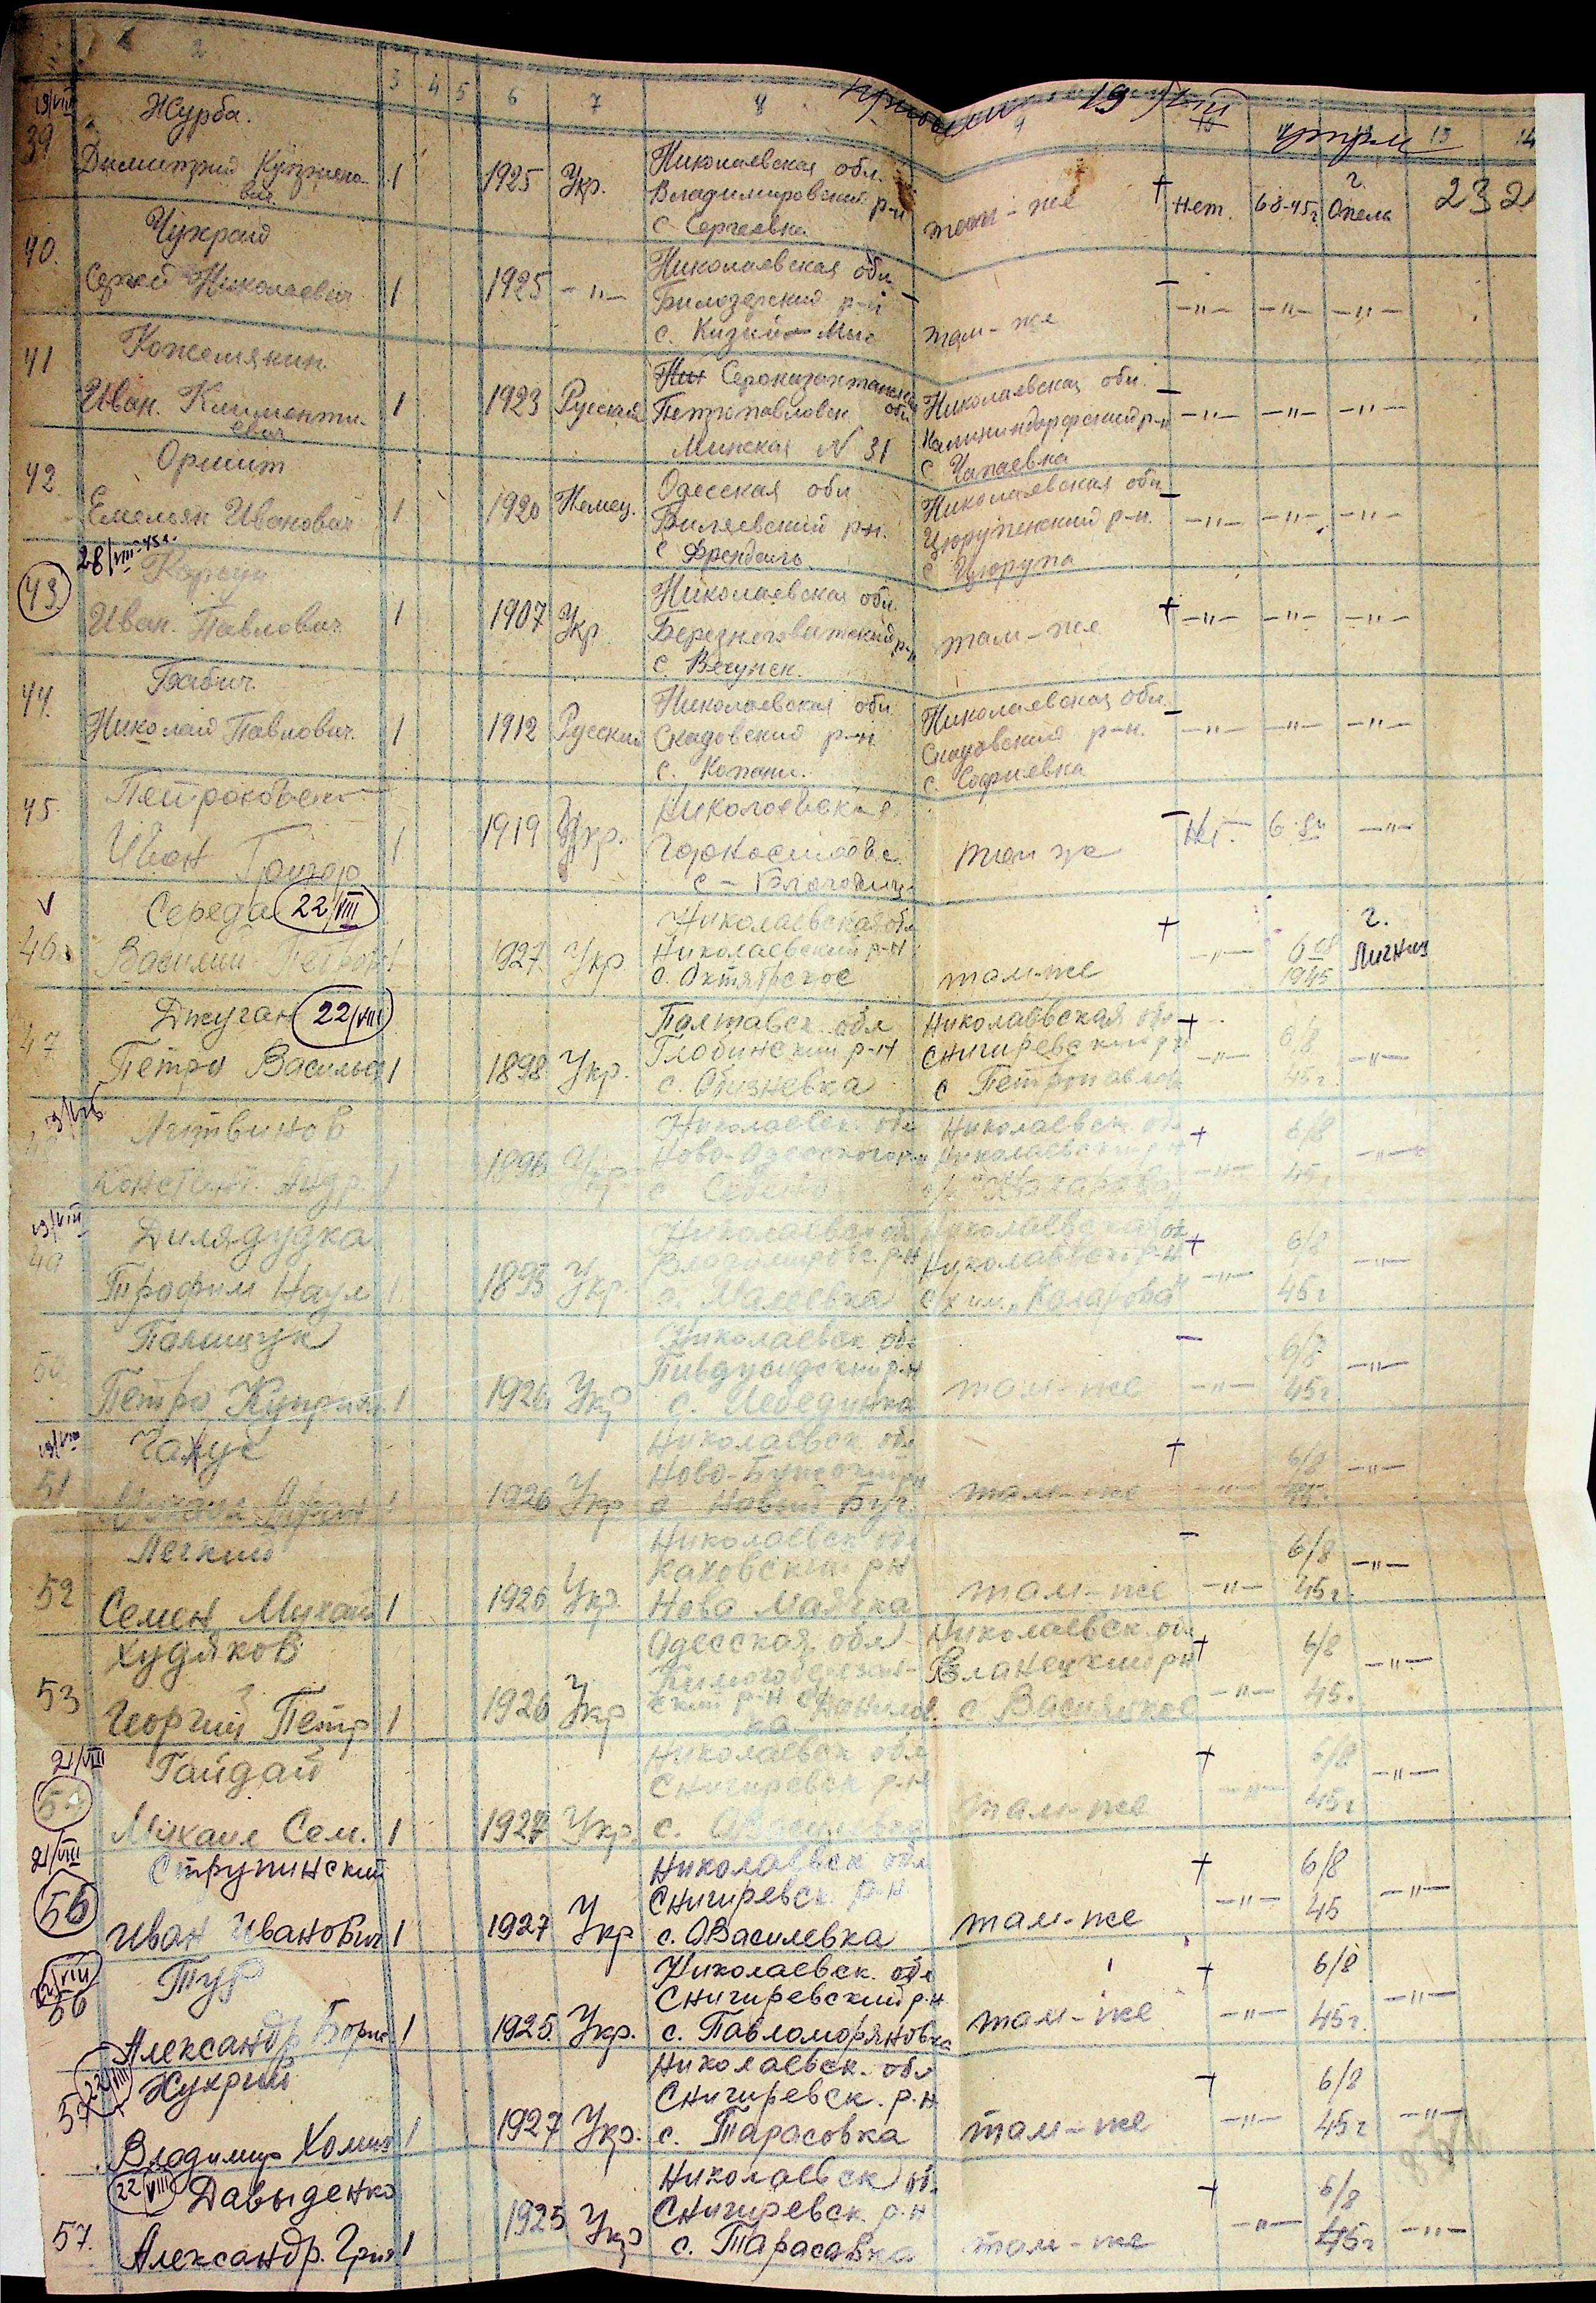 2 3 4 5 6 7 8 9 10 13 14
19/VIII
19/VIII
39 Журба.
Димитрий Кузьмо-
вич 1 1925 Укр. Николаевская обл.
Владимировский р-н
с Сергеевка там-же + нет. 6 8-45г г. Опель 232
40. Чухрай
Сергей Николаевич 1 1925 -"- Николаевская обл
Билозерский р-н
с. Кизий-Мыс там-же - -"- -"- -"-
41 Кожемякин
Иван. Климента-
евич 1 1923 Русская Петропавловск обл
Минская N 31 Николаевская обл.
Калининдорфский р-н
с Чапаевка - -"- -"- -"-
42 Оршит
Емельян Иванович 1 1920 Немец. Одесская обл
Биляевский р-н.
с Френдаль Николаевская обл
Цюрупинский р-н.
с Цюрупа - -"- -"- -"-
28/VIII-45г.
43
Иван. Павлович 1 1907 Укр. Николаевская обл.
Березнеговатский р-н
с. Висунск. там-же + -"- -"- -"-
44. Бабич.
Николай Павлович. 1 1912 Русский Николаевская обл
Скадовский р-н
с. Копани. Николаевская обл.
Скадовский р-н.
с. Софиевка - -"- -"- -"-
45. Петроковск
Иван Григор 1 1919 Укр. Николаевская
Горностаевс.
с - там же - Нет. -"-
v Середа 22/VIII
46. Василий Петров 1 1927 Укр Николаевская обл
Николаевский р-н
с. Октябрское там-же + -"- 6 08 1945 г. Лигниц
47 Джуган 22/VIII
Петро Василь 1 1898 Укр. Полтавск. обл
Глобинский р-н
с. Обизневка Николаевская обл
Снигиревский р-н
с Петропавлов + -"- 6/8 45г. -"-
Литвинов
Констант. Андр. 1 Укр Николаевск. обл
Ново-Одесского р-н
с Себино Николаевск. обл
Николаевский р-н + -"- 6/8 45г -"-
19/VIII
49 Дилядудка
Трофим Наум 1 1895 Укр. Николаевск обл
Владимировс. р-н
с. Малеевка Николаевская об
Николаевск р-н
с/х им. "Коларова" + -"- 6/8 45г -"-
50 Полищук
Петро Куприян. 1 1926 Укр Николаевск. обл
с. Лебединка там-же - -"- 6/8 45г. -"-
19/VIII
51 Чалус
1 1926 Укр Николаевск обл
Ново-Бугский рн
с Новый Буг. там-же + -"- 6/8 45. -"-
52 Легкий
Семен Михаил 1 1926 Укр. Николаевск обл
Каховский рн
Ново Маячка там-же - -"- 6/8 45г. -"-
53 Худяков
Георгий Петр 1 1926 Укр Одесская обл
ский р-н с Данилов.
ка Николаевск. об
Еланецкий рн
с Васильков + -"- 6/8 45. -"-
21/VIII
54 Гайдай
Михаил Сем. 1 1927 Укр. Николаевск обл
Снигиревск р-н
с. там-же + -"- 6/8 45г -"-
21/VIII
55 Струпинский
Иван Иванович 1 1927 Укр Николаевск обл
Снигиревск. р-н.
с. Василевка там-же + -"- 6/8 45 -"-
22/VIII
56 Тур
Александр Борис 1 1925. Укр. Николаевск. обл
Снигиревский р-н
с. Павломорьяновка там-же + -"- 6/8 45г. -"-
22/VIII
57 Жукрий
Владимир Хомич 1 1927 Укр. Николаевск. обл
Снигиревск. р-н
с. Тарасовка там-же + -"- 6/8 45г -"-
22/VIII Давыденко
57. Александр. Григ 1 1925 Укр Николаевск об.
Снигиревск. р-н
с. Тарасовка там-же + -"- 6/8 45г -"-